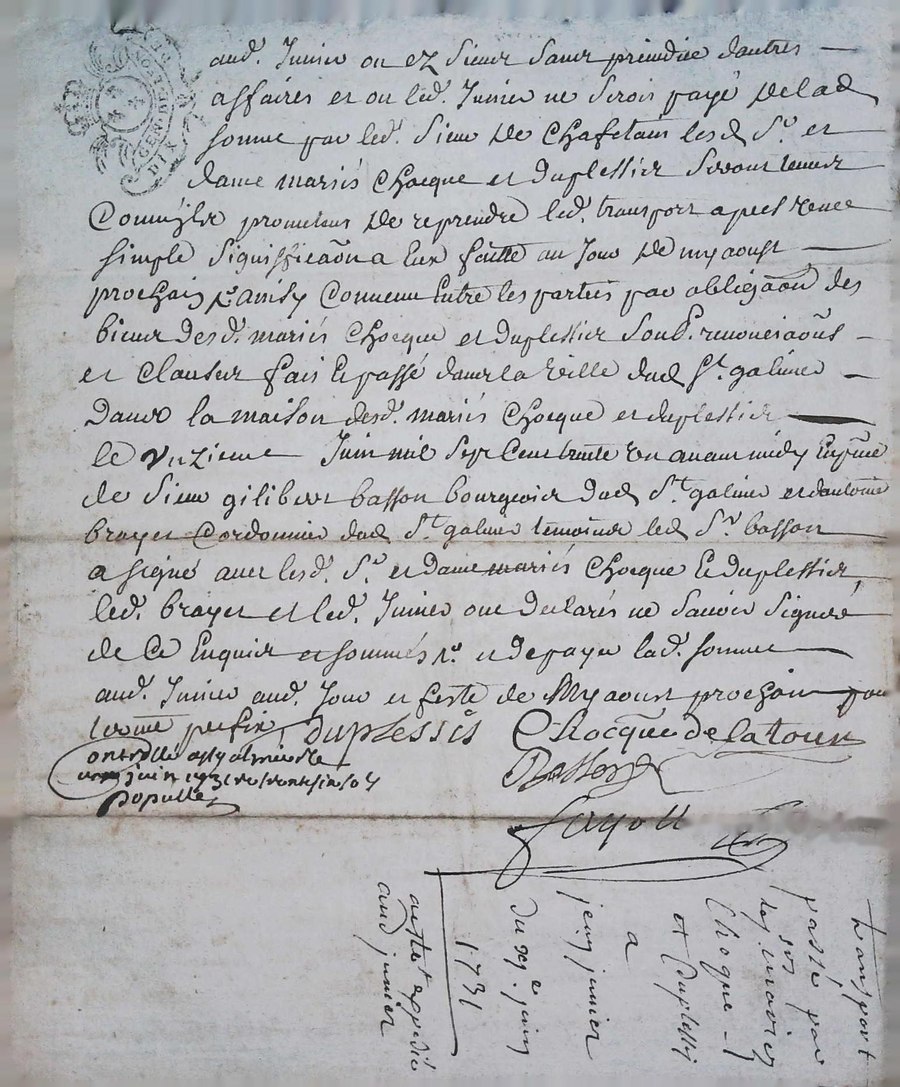 GEN. DE LYON
DIX
aud. Junier ou ez sieur sans prendre dautres
affaires et ou led. Junier ne serois payé de lad
somme par led. sieur de Chafetain lesd Sr. et
dame mariés Chocque et duplessier
promettent de reprendre led. transport apres
simple significaon a Eux faitte au Jour de myaoust
prochain pr. ainsy Convenu Entre les parties par obligaon des
biens desd. mariés Chocque et duplessier
et Clauses fait Et passé dans la ville dud St. galmier
Dans la maison desd. mariés Chocque et duplessier
le unzieme Juin mil sept Cent trente un avant midy En
de sieur gilibert basson bourgeois dud St. galmier et dantoine
brayer Cordonnier dud St. galmier temoins led Sr. basson
a signé avec lesd. Sr. et dame mariés Chocque Et duplessier
led. brayer et led. Junier ont declarés ne savoir signer
de Ce Enquis et sommés et de payer lad. somme
aud. Junier aud. Jour et feste de Myaoust prochain pour
terme prefix Duplessis Chocque de latour
Controllé a St galmier le
juin 1731
Basson
populle
fayolle
transport
passé par
les mariez
Choque
et Duplessis
a
jean junier
du xje. juin
1731
aud junier